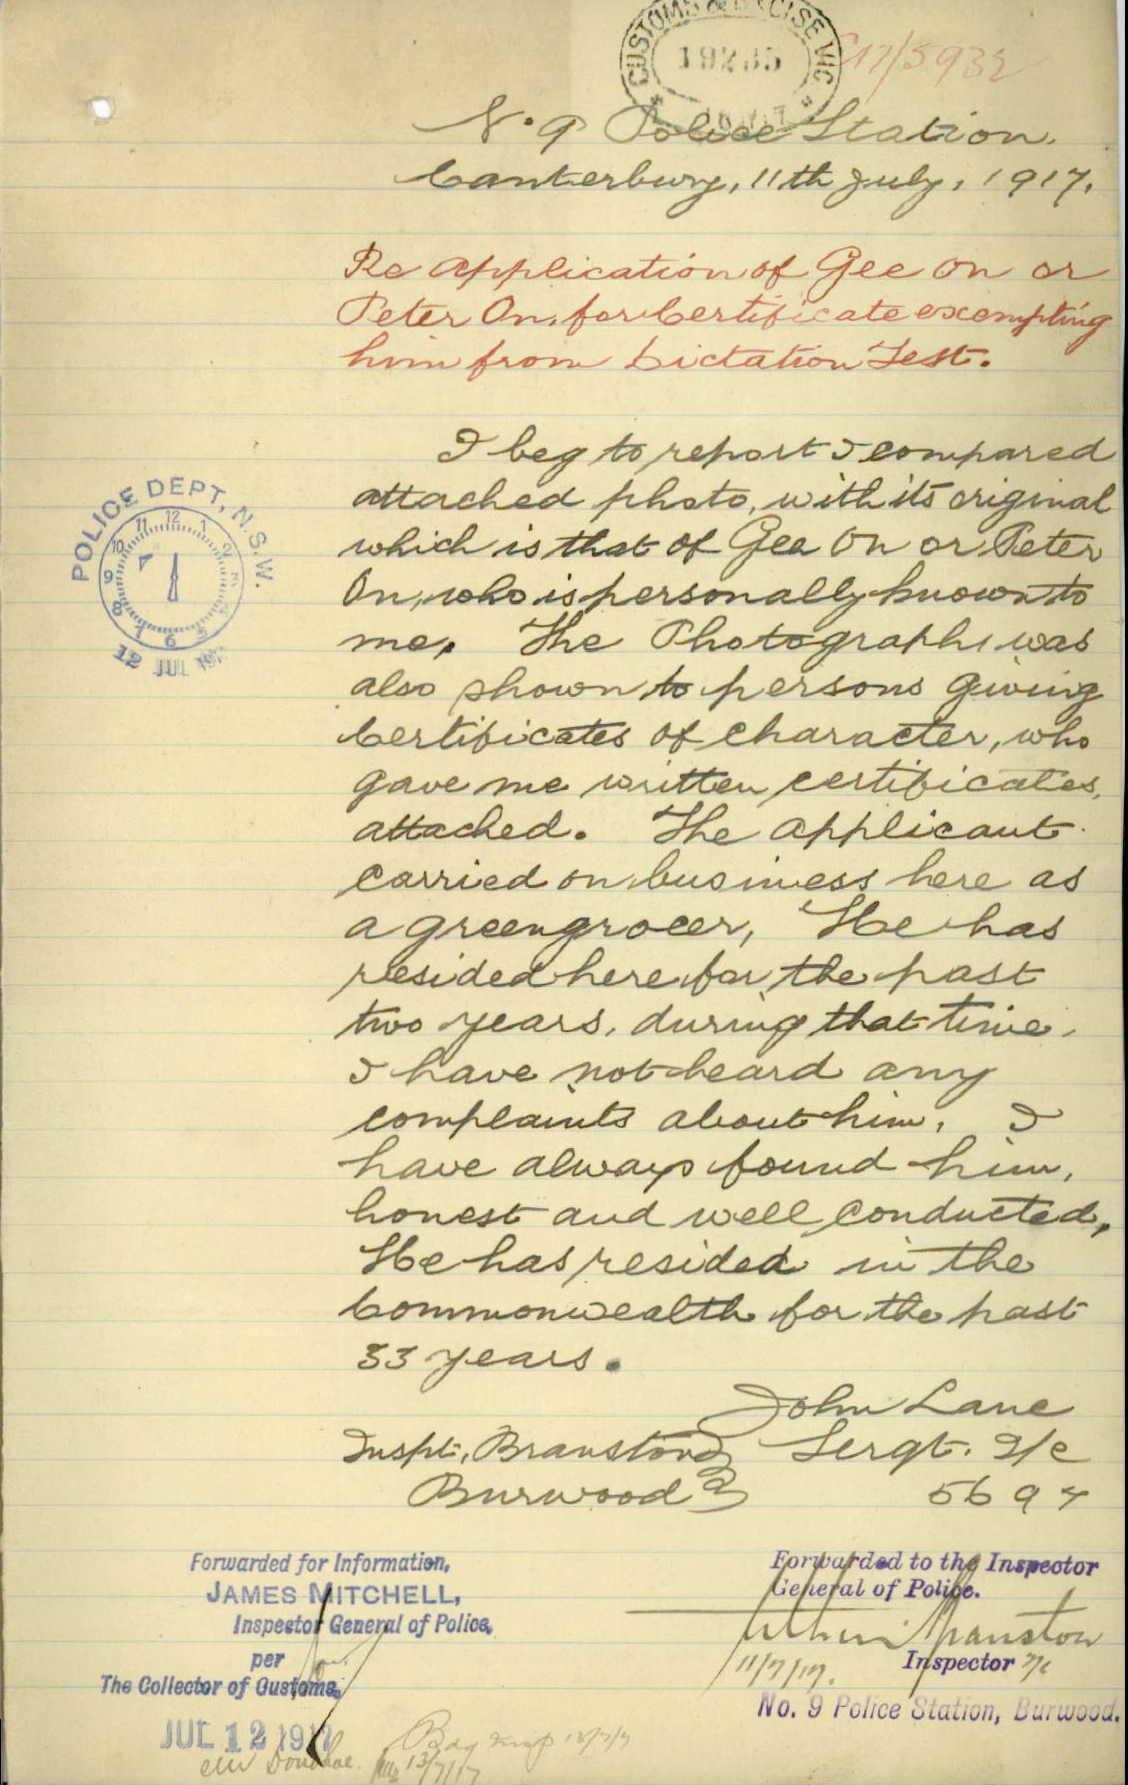 CUSTOMS & EXCISE VIC
19235
C17/5932
No. 9 Police Station.
Canterbury, 11th July, 1917.
Re application of Gee On or
Peter On, for Certificate exempting
him from Dictation Test.
I beg to report I compared
attached photo, with its original
which is that of Gee On or Peter
On, who is personally known to
me. The Photograph was
also shown to persons giving
Certificates of Character, who
gave me written certificates,
attached. The applicant
carried on business here as
a greengrocer, He has
resided here for the past
two years, during that time
I have not heard any
complaints about him, I
have always found him,
honest and well conducted,
He has resided in the
Commonwealth for the past
33 years.
POLICE DEPT, N.S.W.
12 1 2 3 4 5 6 7 8 9 10 11
12 JUL 191
John Lane
Inspt. Branston Sergt. 2/c
Burwood 5694
Forwarded for Information,
JAMES MITCHELL,
Inspector General of Police.
per
The Collector of Customs.
JUL 12 1917
Mr Donohoe
13/7/17
Forwarded to the Inspector
General of Police.
Branston
11/7/17. Inspector
No. 9 Police Station, Burwood.